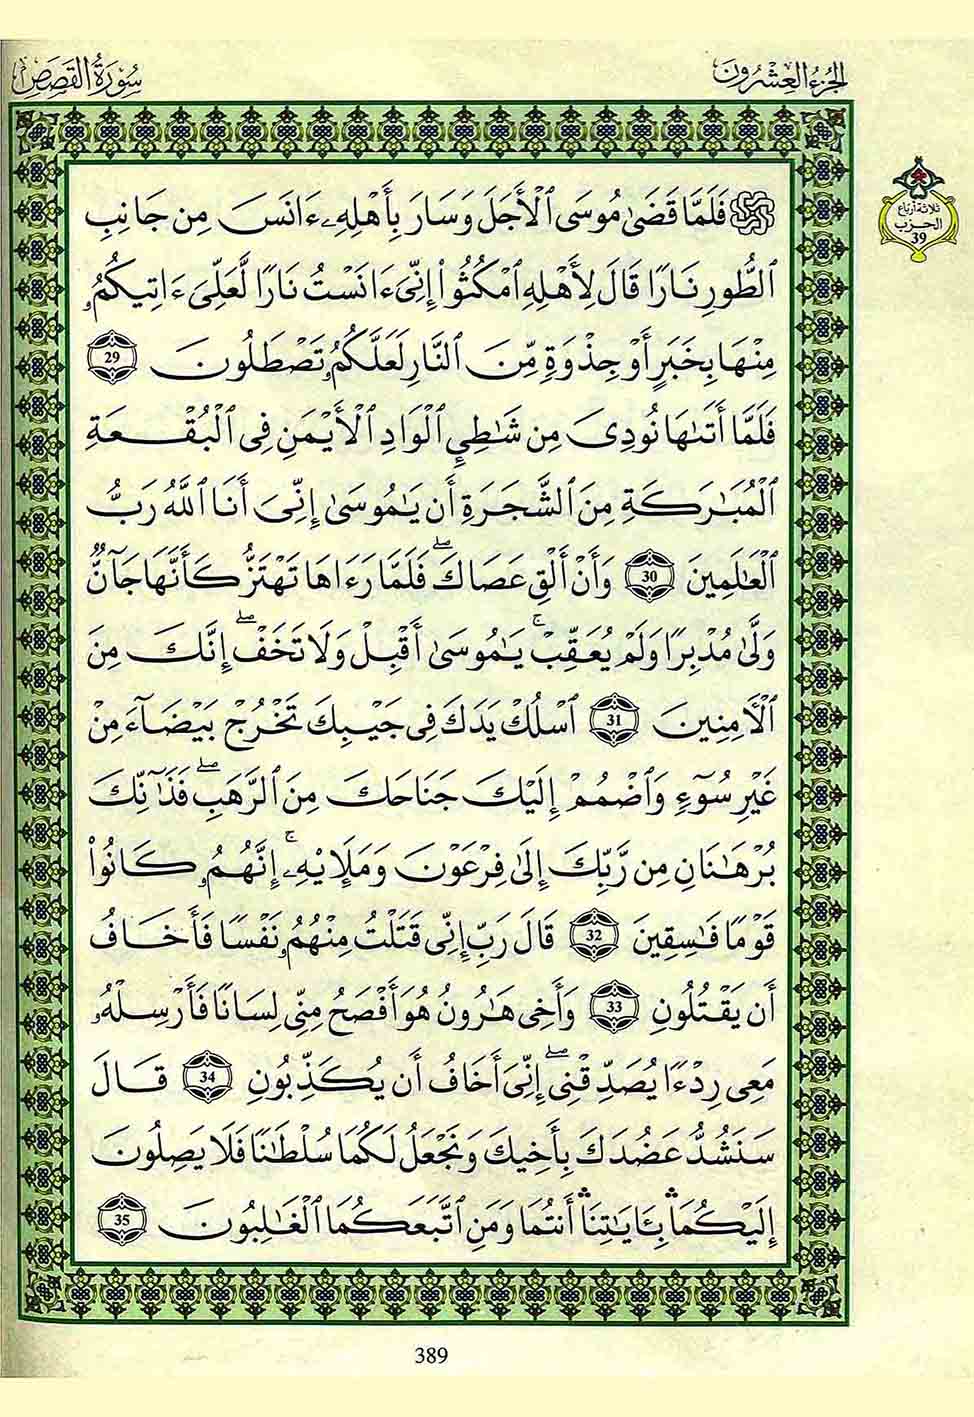 الجزء العشرون
سورة القصص
ثلاثة أرباع
الحزب
39
۞ فَلَمَّا قَضَىٰ مُوسَى ٱلْأَجَلَ وَسَارَ بِأَهْلِهِۦ ءَانَسَ مِن جَانِبِ
ٱلطُّورِ نَارًا قَالَ لِأَهْلِهِ ٱمْكُثُوٓا۟ إِنِّىٓ ءَانَسْتُ نَارًا لَّعَلِّىَ ءَاتِيكُمُۥ
مِنْهَا بِخَبَرٍ أَوْ جِذْوَةٍ مِّنَ ٱلنَّارِ لَعَلَّكُمُۥ تَصْطَلُونَ 29
فَلَمَّآ أَتَىٰهَا نُودِىَ مِن شَـٰطِئِ ٱلْوَادِ ٱلْأَيْمَنِ فِى ٱلْبُقْعَةِ
ٱلْمُبَـٰرَكَةِ مِنَ ٱلشَّجَرَةِ أَن يَـٰمُوسَىٰٓ إِنِّىَ أَنَا ٱللَّهُ رَبُّ
ٱلْعَـٰلَمِينَ 30 وَأَنْ أَلْقِ عَصَاكَ ۖ فَلَمَّا رَءَاهَا تَهْتَزُّ كَأَنَّهَا جَآنٌّ
وَلَّىٰ مُدْبِرًا وَلَمْ يُعَقِّبْ ۚ يَـٰمُوسَىٰٓ أَقْبِلْ وَلَا تَخَفْ ۖ إِنَّكَ مِنَ
ٱلْـَٔامِنِينَ 31 ٱسْلُكْ يَدَكَ فِى جَيْبِكَ تَخْرُجْ بَيْضَآءَ مِنْ
غَيْرِ سُوٓءٍ وَٱضْمُمْ إِلَيْكَ جَنَاحَكَ مِنَ ٱلرَّهَبِ ۖ فَذَٰٓنِّكَ
بُرْهَـٰنَانِ مِن رَّبِّكَ إِلَىٰ فِرْعَوْنَ وَمَلَإِي۟هِۦٓ ۚ إِنَّهُمُۥ كَانُوا۟
قَوْمًا فَـٰسِقِينَ 32 قَالَ رَبِّ إِنِّى قَتَلْتُ مِنْهُمُۥ نَفْسًا فَأَخَافُ
أَن يَقْتُلُونِ 33 وَأَخِى هَـٰرُونُ هُوَ أَفْصَحُ مِنِّى لِسَانًا فَأَرْسِلْهُۥ
مَعِى رِدْءًا يُصَدِّقْنِىٓ ۖ إِنِّىَ أَخَافُ أَن يُكَذِّبُونِ 34 قَالَ
سَنَشُدُّ عَضُدَكَ بِأَخِيكَ وَنَجْعَلُ لَكُمَا سُلْطَـٰنًا فَلَا يَصِلُونَ
إِلَيْكُمَا ۛ بِـَٔايَـٰتِنَآ ۛ أَنتُمَا وَمَنِ ٱتَّبَعَكُمَا ٱلْغَـٰلِبُونَ 35
389